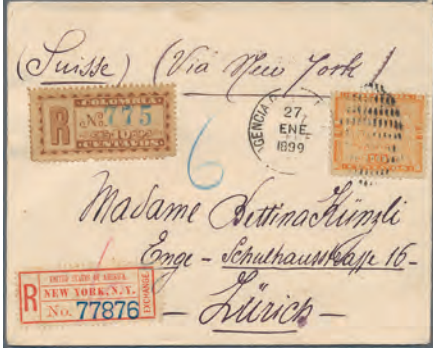 (Suisse) (Via New York)
COLOMBIA
R No. 775
10
CENTAVOS
AGENCIA
27
ENE
1899
6
Madame Bettina Künzli
Enge - Schulhausstrasse 16 -
UNITED STATES OF AMERICA.
R NEW YORK, N.Y.
No. 77876
EXCHANGE
- Zürich -